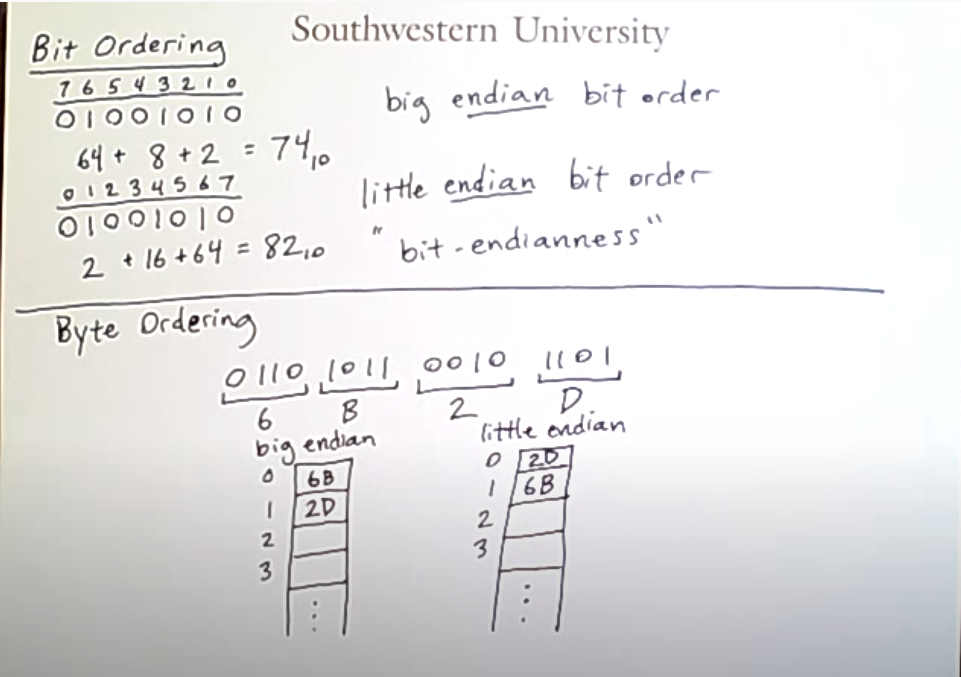 Southwestern University
Bit Ordering
7 6 5 4 3 2 1 0
0 1 0 0 1 0 1 0
big endian bit order
64 + 8 + 2 = 74₁₀
0 1 2 3 4 5 6 7
0 1 0 0 1 0 1 0
little endian bit order
2 + 16 + 64 = 82₁₀
"bit-endianness"
Byte Ordering
0110 1011 0010 1101
6 B 2 D
big endian
0 6B
1 2D
2
3
⋮
little endian
0 2D
1 6B
2
3
⋮